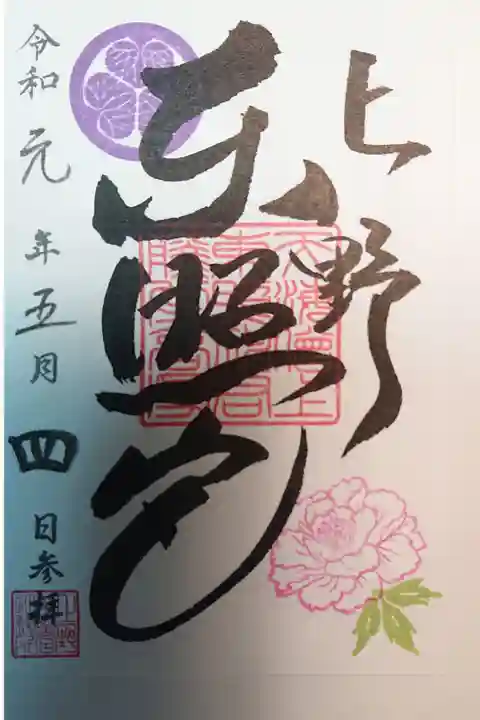 上野
東照宮
令和元年五月四日参拝